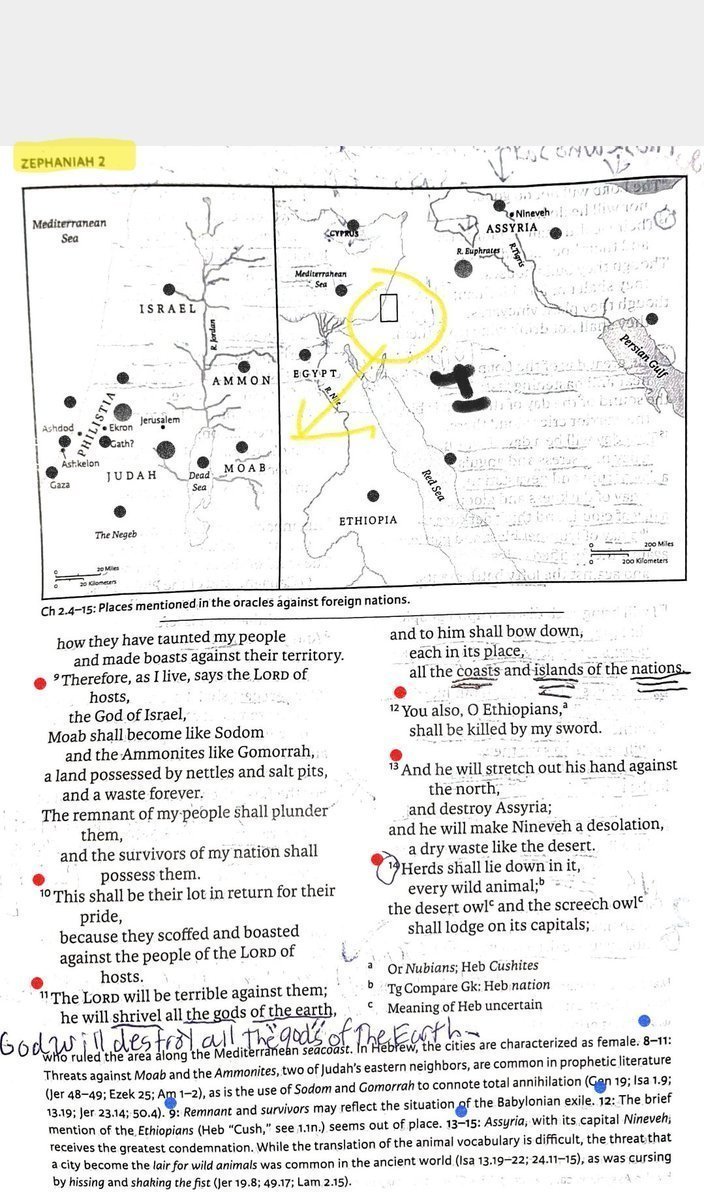 ZEPHANIAH 2
Mediterranean
Sea
ISRAEL
R. Jordan
AMMON
PHILISTIA
Ashdod
Ekron
Jerusalem
Gath?
Ashkelon
Gaza
JUDAH
Dead
Sea
MOAB
The Negeb
0 20 Miles
0 20 Kilometers
CYPRUS
Mediterranean
Sea
EGYPT
R. Nile
ETHIOPIA
Red Sea
Nineveh
ASSYRIA
R. Euphrates
R. Tigris
Persian Gulf
0 200 Miles
0 200 Kilometers
Ch 2.4–15: Places mentioned in the oracles against foreign nations.
how they have taunted my people
and made boasts against their territory.
9 Therefore, as I live, says the LORD of
hosts,
the God of Israel,
Moab shall become like Sodom
and the Ammonites like Gomorrah,
a land possessed by nettles and salt pits,
and a waste forever.
The remnant of my people shall plunder
them,
and the survivors of my nation shall
possess them.
10 This shall be their lot in return for their
pride,
because they scoffed and boasted
against the people of the LORD of
hosts.
11 The LORD will be terrible against them;
he will shrivel all the gods of the earth,
and to him shall bow down,
each in its place,
all the coasts and islands of the nations.
12 You also, O Ethiopians,a
shall be killed by my sword.
13 And he will stretch out his hand against
the north,
and destroy Assyria;
and he will make Nineveh a desolation,
a dry waste like the desert.
14 Herds shall lie down in it,
every wild animal;b
the desert owlc and the screech owlc
shall lodge on its capitals;
a Or Nubians; Heb Cushites
b Tg Compare Gk: Heb nation
c Meaning of Heb uncertain
God will destroy all the "gods" of The Earth
who ruled the area along the Mediterranean seacoast. In Hebrew, the cities are characterized as female. 8–11:
Threats against Moab and the Ammonites, two of Judah's eastern neighbors, are common in prophetic literature
(Jer 48–49; Ezek 25; Am 1–2), as is the use of Sodom and Gomorrah to connote total annihilation (Gen 19; Isa 1.9;
13.19; Jer 23.14; 50.4). 9: Remnant and survivors may reflect the situation of the Babylonian exile. 12: The brief
mention of the Ethiopians (Heb "Cush," see 1.1n.) seems out of place. 13–15: Assyria, with its capital Nineveh,
receives the greatest condemnation. While the translation of the animal vocabulary is difficult, the threat that
a city become the lair for wild animals was common in the ancient world (Isa 13.19–22; 24.11–15), as was cursing
by hissing and shaking the fist (Jer 19.8; 49.17; Lam 2.15).